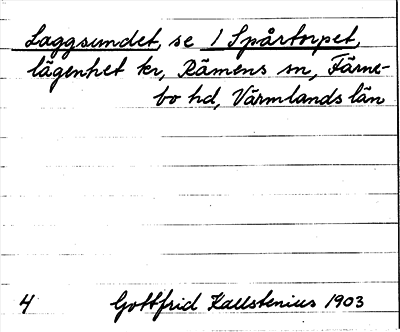 Laggsundet, se 1 Spårtorpet,
lägenhet kr, Rämens sn, Färne-
bo hd, Värmlands län
4 Gottfrid Kallstenius 1903